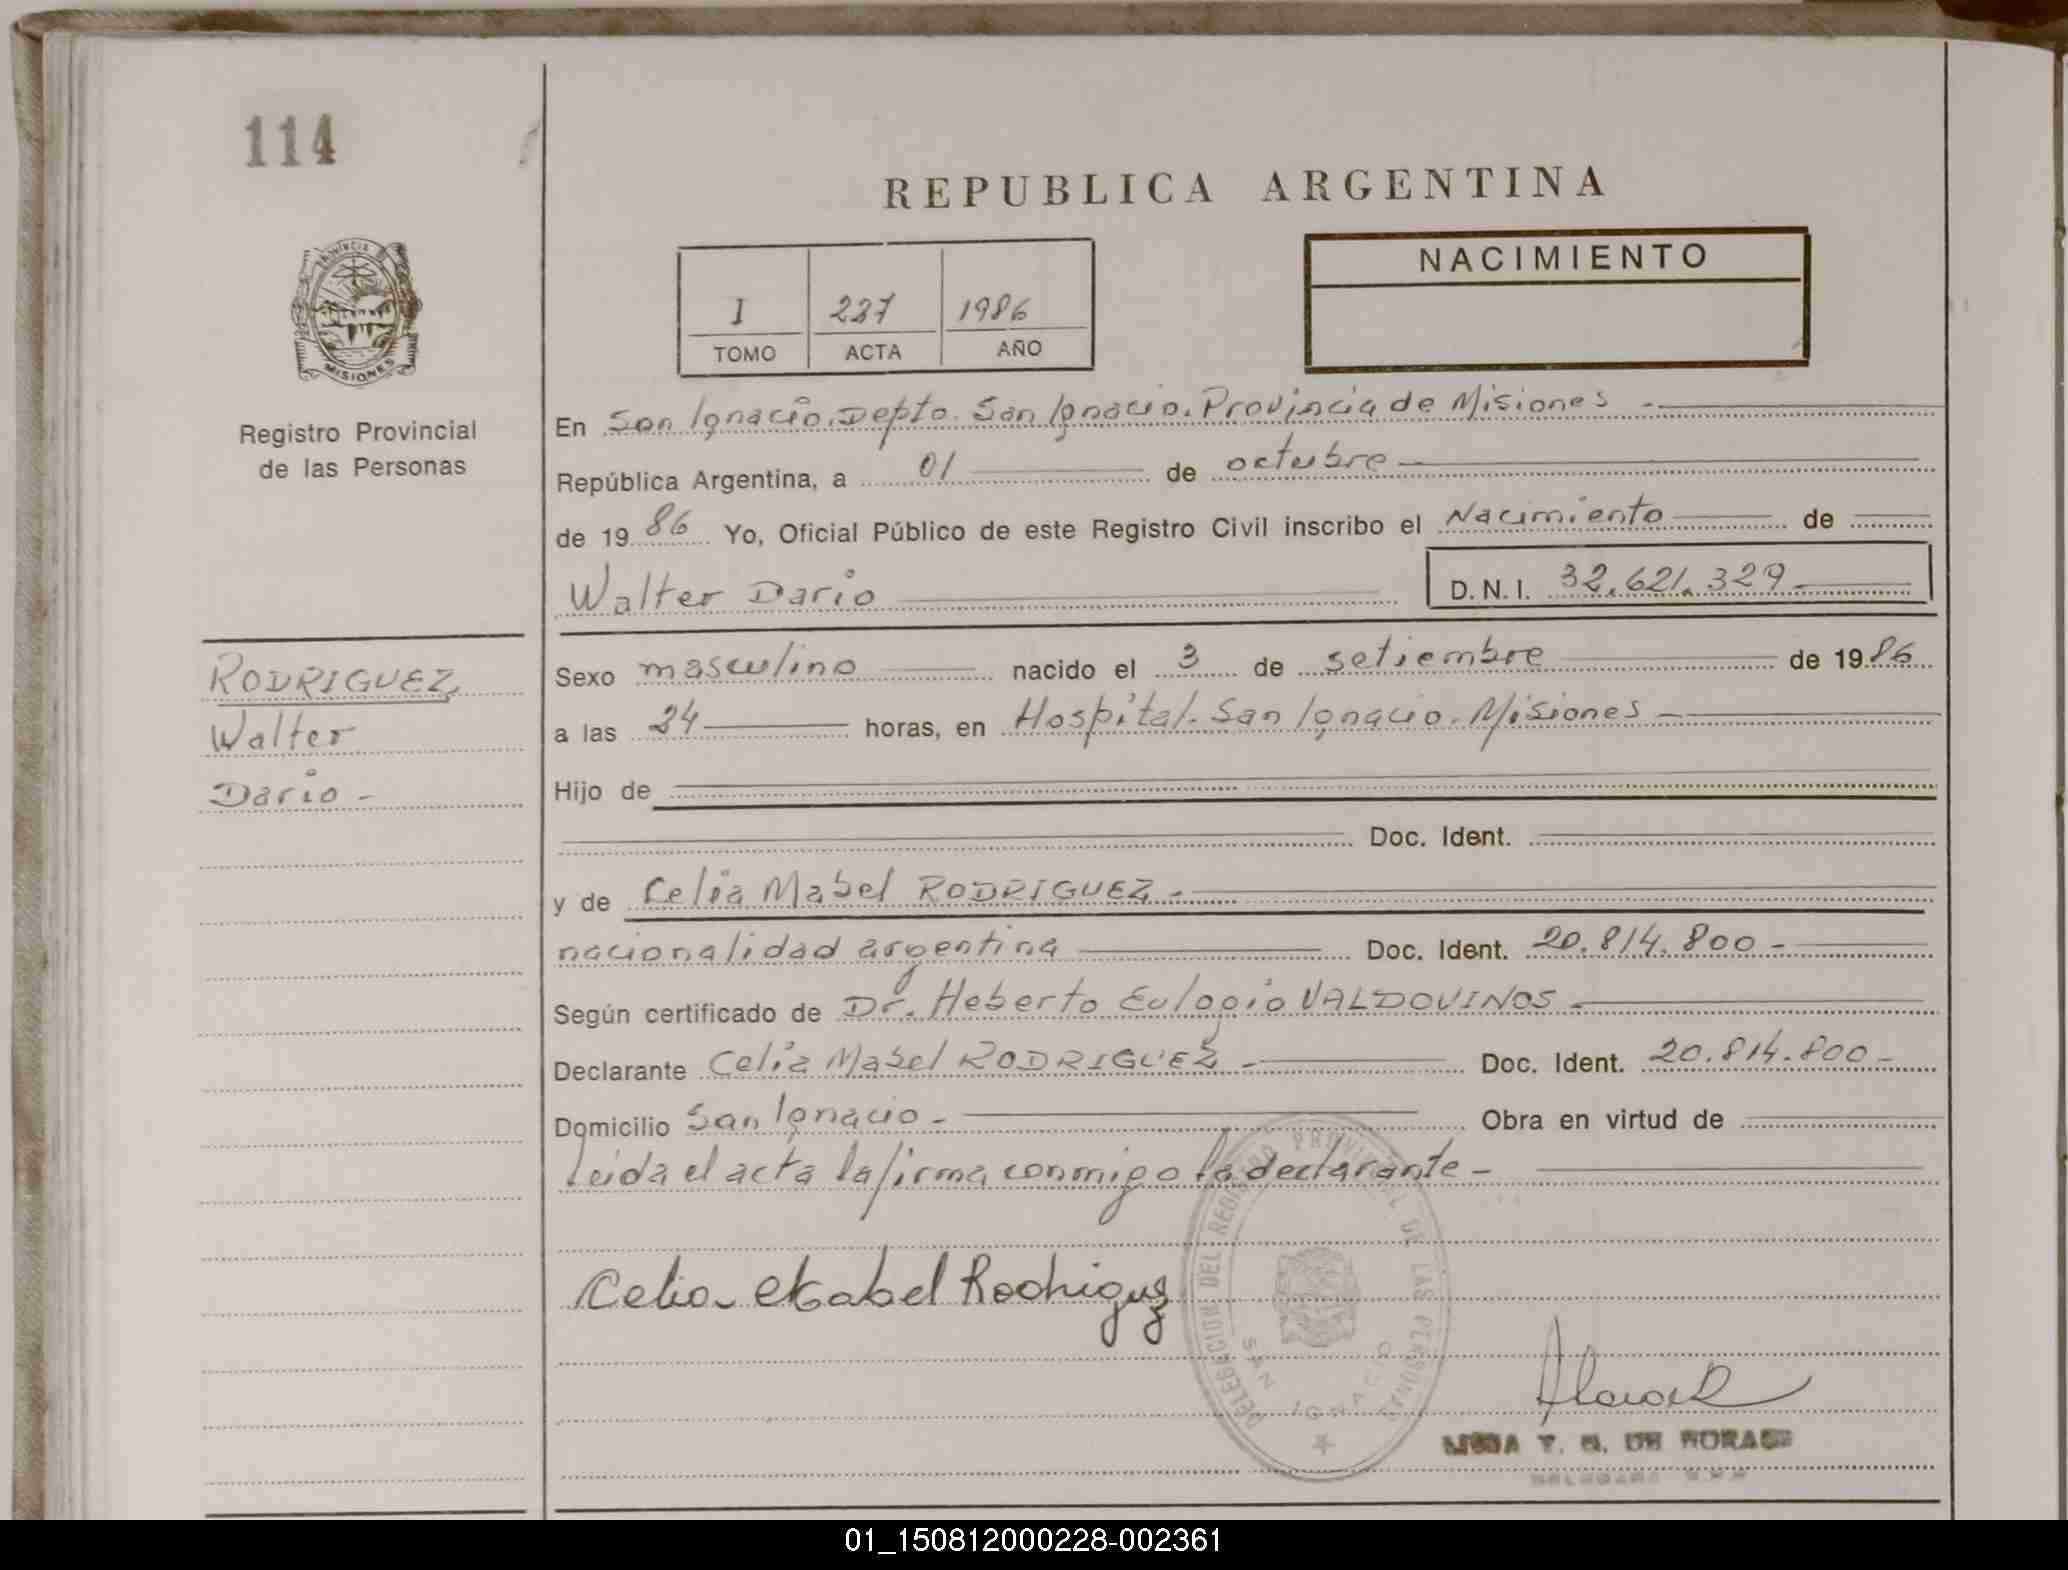 114
REPUBLICA ARGENTINA
NACIMIENTO
I 227 1986
TOMO ACTA AÑO
PROVINCIA
MISIONES
Registro Provincial
de las Personas
En San Ignacio. Depto. San Ignacio. Provincia de Misiones -
República Argentina, a 01 de octubre
de 1986 Yo, Oficial Público de este Registro Civil inscribo el Nacimiento de
Walter Dario D.N.I. 32.621.329-
RODRIGUEZ,
Walter
Dario -
Sexo masculino nacido el 3 de setiembre de 1986
a las 24 horas, en Hospital. San Ignacio. Misiones -
Hijo de
Doc. Ident.
y de Celia Mabel RODRIGUEZ -
nacionalidad argentina Doc. Ident. 20.814.800 -
Según certificado de Dr. Heberto Eulogio VALDOVINOS -
Declarante Celia Mabel RODRIGUEZ - Doc. Ident. 20.814.800 -
Domicilio San Ignacio - Obra en virtud de
Leida el acta la firma conmigo la declarante -
Celia Mabel Rodriguez
DELEGACION DEL REGISTRO PROVINCIAL DE LAS PERSONAS
SAN IGNACIO
DE
01_150812000228-002361